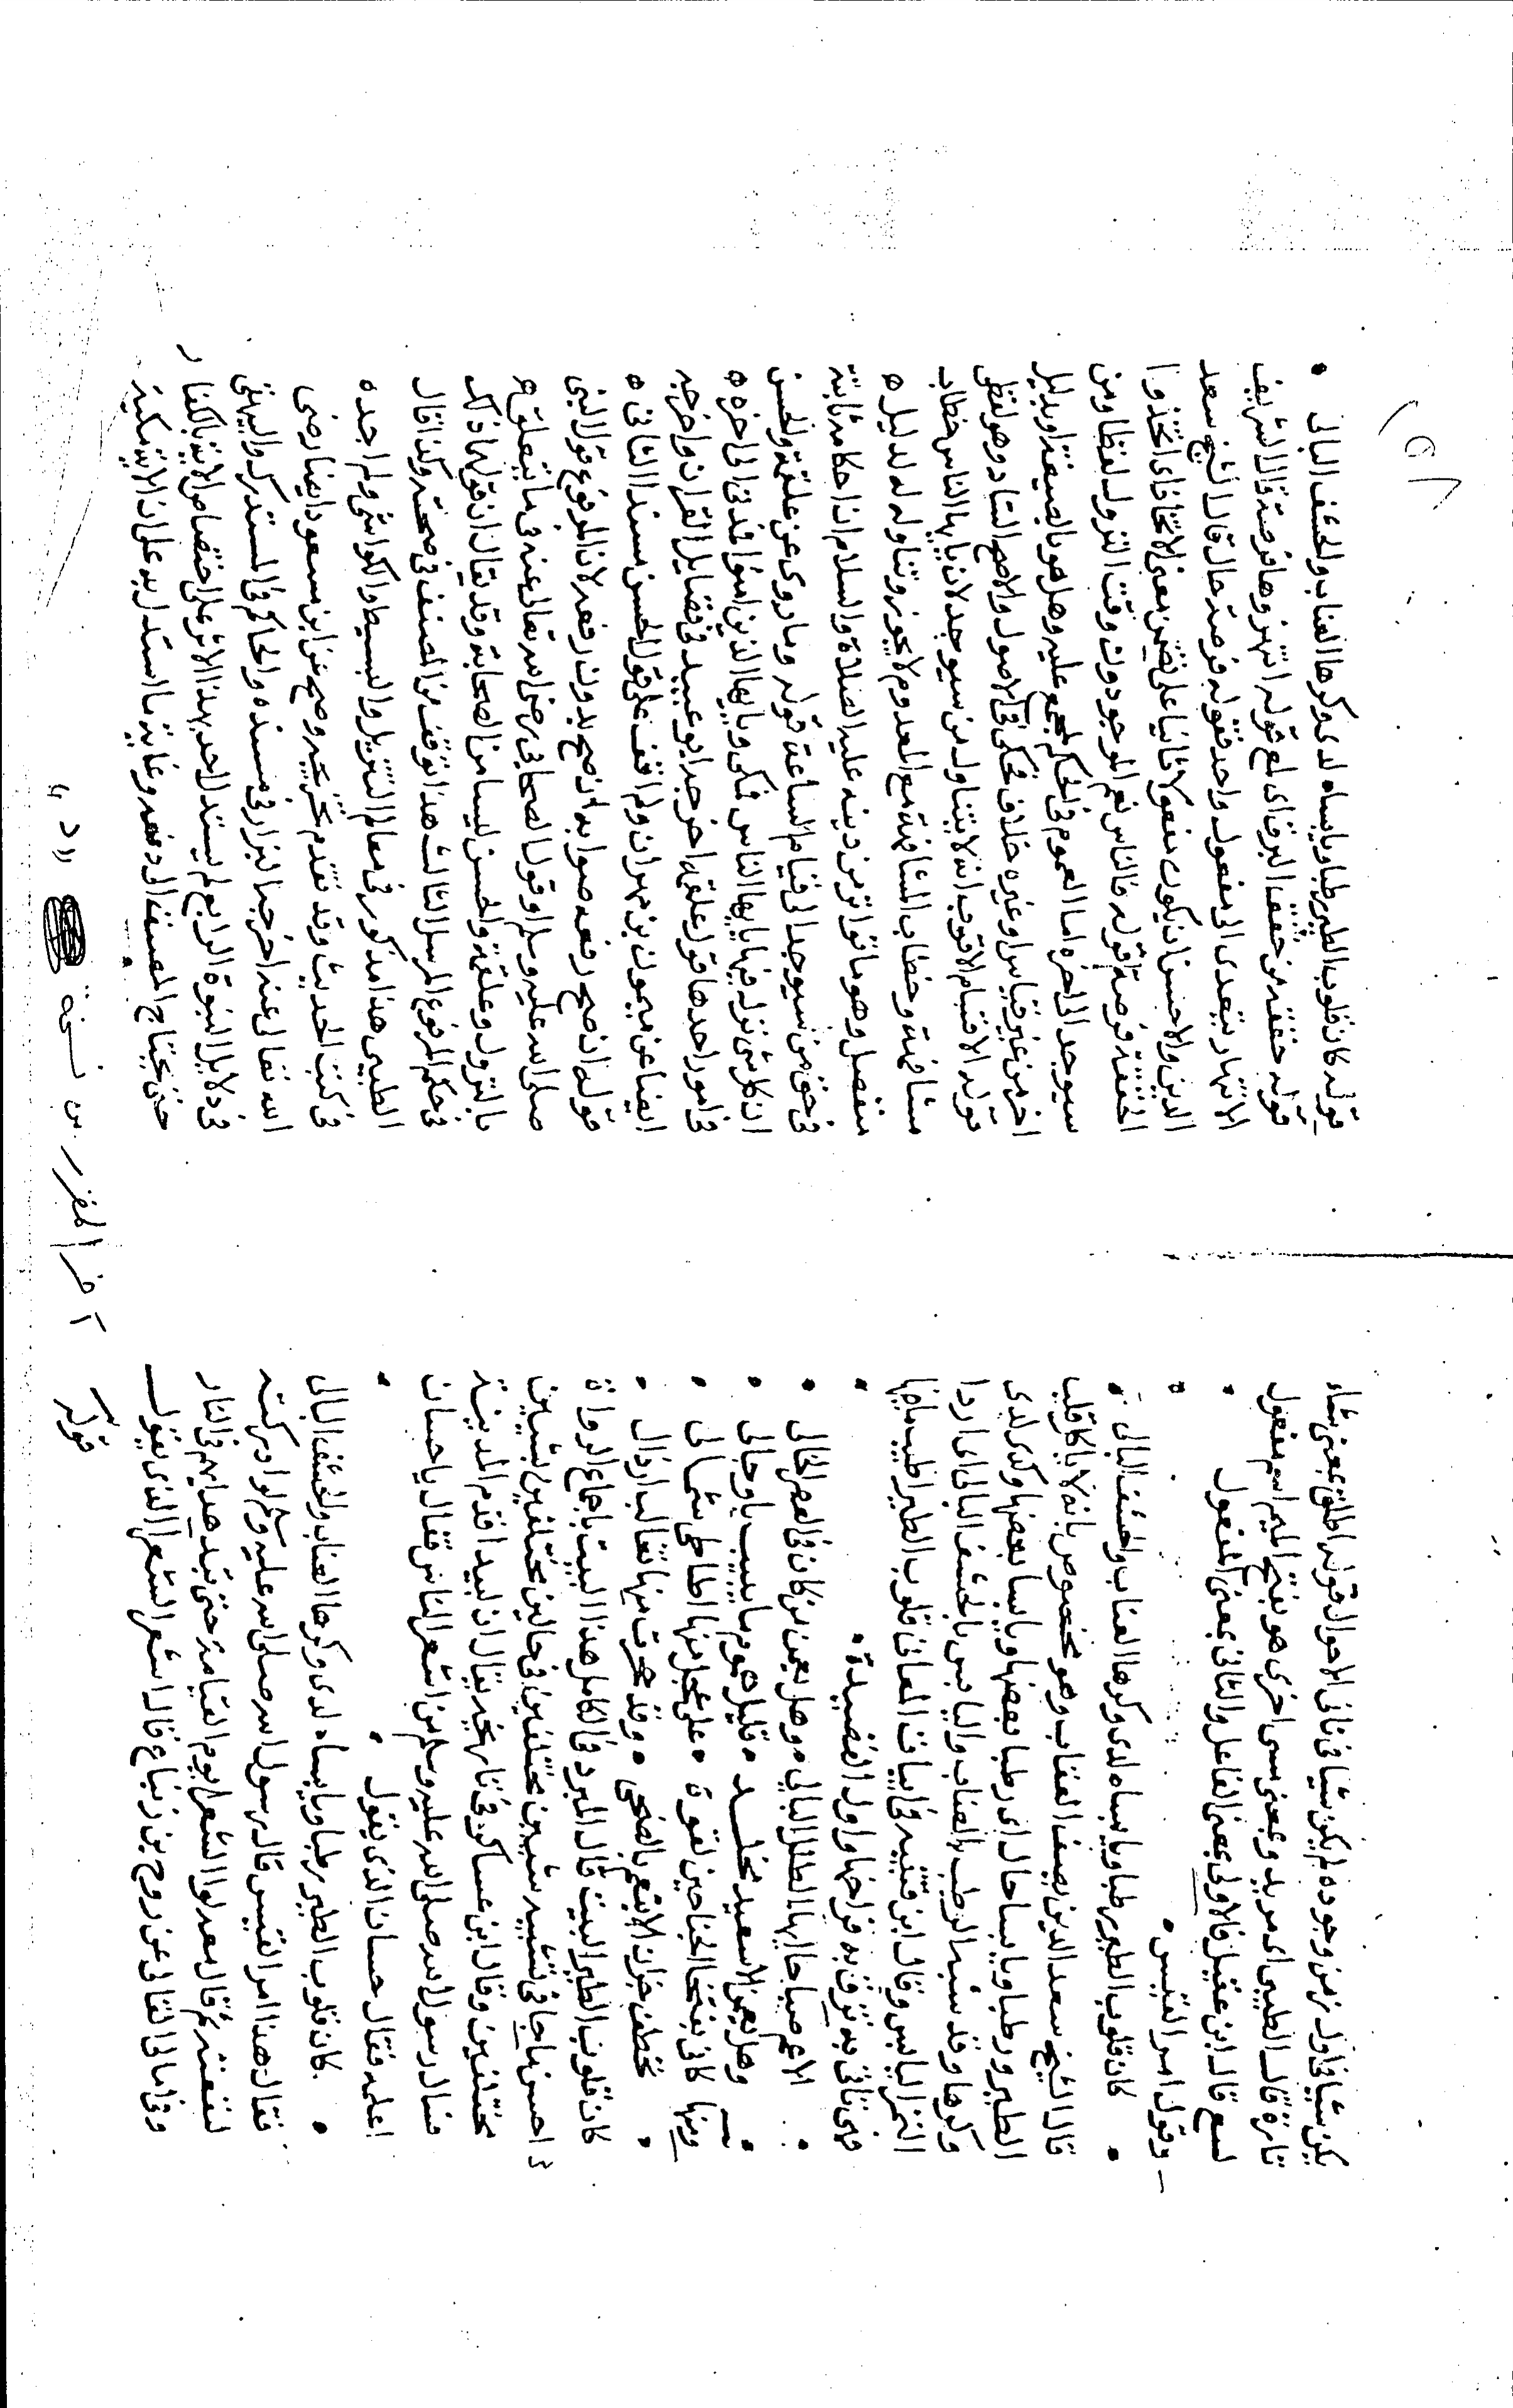 يكن شيا في اول زمن وجوده لم يكن شيا في ثاني الاحوال قوله اطلق بمعنى شاء
تارة قال الطيبي اى مريد وبمعنى مسى اخرى هو بفتح الميم اسم مفعول
قال ابن عقيل فالاول بمعنى الفاعل والثانى بمعنى المفعول
وقول امر القيس
كان قلوب الطير رطبا ويابسا ه لدى وكرها العناب والحشف البالى
قال الشيخ سعد الدين يصف العقاب وهو مخصوص بانه لا ياكل قلب
الطير ورطبا ويابسا حال اى رطبا بعضها ويابسا بعضها وكذى لدى
وكرها وقد شبه الرطب بالعناب واليابس بالحشف البالى اى اردا
التمر اليابس وقال ابن قتيبه في ابيات المعانى قلوب الطير اطيب ما فيها
فهى تاتى به تزق به فراخها واول القصيدة
الا عم صباحا ايها الطلل البالي ه وهل يعمن من كان فى العصر الخالى
وهل يعمن الا سعيد مخلد ه قليل هموم ما يبيت باوجالى
ومنها كانى بفتخا الجناحين لقوة ه على عجل منها اطاطى شمالى
تخطف خزان الانعم بالضحى ه وقد جحرت منها ثعالب اورال
كان قلوب الطير البيت قال المبرد فى الكامل هذا البيت باجماع الرواة
احسن ما جا فى تشبيه شيين مختلفين فى حالين مختلفين بشيين
مختلفين وقال ابن عساكر فى تاريخه يقال ان لبيدا قدم المدينة
فسال رسول الله صلى الله عليه وسلم من اشعر الناس فقال يا حسان
اعلمه فقال حسان الذى يقول
كان قلوب الطير رطبا ويابسا ه لدى وكرها العناب والحشف البالى
فقال هذا امر القيس قال رسول الله صلى الله عليه وسلم لو ادركته
لنفعته ثم قال الشعرا يوم القيامة حتى يتدهدا بهم فى النار
وفى امالى القالى عن روح بن زنباع قال اشعر الشعرا الذى يقول
قوله
قوله كان قلوب الطير رطبا ويابسا ه لدى وكرها العناب والحشف البالى
قوله خفقة من خفق البرق اى لمع قوله انتهز وها فرصة قال الشريف
الانتهاز يتعدى الى مفعول واحد فقوله فرصة حال قال الشيخ سعد
الدين والاحسن ان يكون مفعولا ثانيا على تضمين معنى الاتخاذ اى اتخذوا
الخفقة فرصة قوله فالناس نعم الموجودون وقت النزول لفظا ومن
سيوجد الى اخره اما العموم فى الحكم فمجمع عليه وهل هو بالصيغة او بدليل
اخر من غير قياس او غيره خلاف محكى فى الاصول والاصح الثانى وهو لفظى
قوله الاقسام الاقرب انه لا يتناول من سيوجد لان يايها الناس خطاب
مشافهة وخطاب المشافهة مع المعدوم لا يجوز وتناوله له لدليل ه
منفصل وهو ما تواتر من دينه عليه الصلاة والسلام ان احكامه ثابتة
فى حق من سيوجد الى قيام الساعة قوله وما روى عن علقمة والحسن
ان كل شى نزل فيه يايها الناس فمكى ويايها الذين امنوا فمدنى الى اخره ه
فى امور احدها قول علقمة اخرجه ابو عبيد فى فضايل القران واخرجه
ايضا عن ميمون بن مهران ولم اقف على قول الحسن مسندا الثانى ه
قوله ان صح رفعه صوابه ان صح بدون رفعه لان المرفوع قول النبى
صلى الله عليه وسلم او قول الصحابى رضى الله تعالى عنه فى ما يتعلق
بالنزول وعلقمة والحسن ليسا من الصحابة وقد يقال ان قولهما ذلك
فى حكم المرفوع المرسل الثالث هذا التوقف من المصنف فى صحته وكذا قال
الطيبى هذا مذكور فى معالم التنزيل والبسيط والكواشى ولم اجده
فى كتب الحديث وقد تقدم تخريجه وصح عن ابن مسعود ايضا رضى
الله تعالى عنه اخرجه البزار فى مسنده والحاكم فى المستدرك والبيهقى
فى دلايل النبوة الرابع لم يستدل احد بهذا الاثر على اختصاص الاية بالكفار
حتى يحتاج المصنف الى دفعه وغاية ما استدل به على ان الاية مكية
آخر المقرر من نسخة " د "